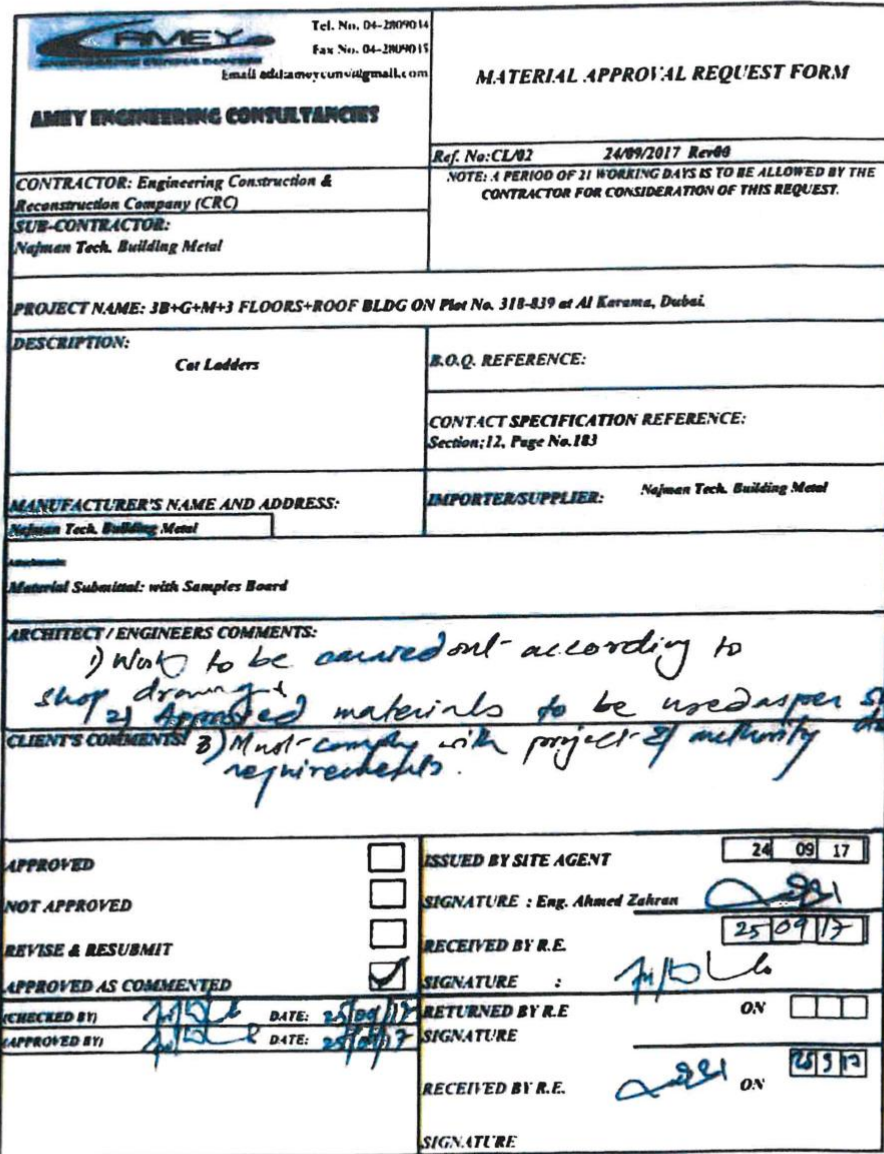 AMEY
Tel. No. 04-2809014
Fax No. 04-2809015
AMEY ENGINEERING CONSULTANCIES
MATERIAL APPROVAL REQUEST FORM
Ref. No:CL/02 24/09/2017 Rev00
NOTE: A PERIOD OF 21 WORKING DAYS IS TO BE ALLOWED BY THE
CONTRACTOR FOR CONSIDERATION OF THIS REQUEST.
CONTRACTOR: Engineering Construction &
Reconstruction Company (CRC)
SUB-CONTRACTOR:
Najman Tech. Building Metal
PROJECT NAME: 3B+G+M+3 FLOORS+ROOF BLDG ON Plot No. 318-839 at Al Karama, Dubai.
DESCRIPTION:
Cat Ladders
B.O.Q. REFERENCE:
CONTACT SPECIFICATION REFERENCE:
Section;12, Page No.183
MANUFACTURER'S NAME AND ADDRESS:
Najman Tech. Building Metal
IMPORTER/SUPPLIER: Najman Tech. Building Metal
Attachments:
Material Submittal: with Samples Board
ARCHITECT / ENGINEERS COMMENTS:
1) Work to be carried out according to
shop drawings
2) Approved materials to be used as per
CLIENT'S COMMENTS: 3) Must comply with project & authority
requirements.
APPROVED
NOT APPROVED
REVISE & RESUBMIT
APPROVED AS COMMENTED
(CHECKED BY) DATE: 25/09/17
(APPROVED BY) DATE: 25/09/17
ISSUED BY SITE AGENT 24 09 17
SIGNATURE : Eng. Ahmed Zahran
RECEIVED BY R.E. 25 09 17
SIGNATURE :
RETURNED BY R.E ON
SIGNATURE
RECEIVED BY R.E. ON 25 9 17
SIGNATURE